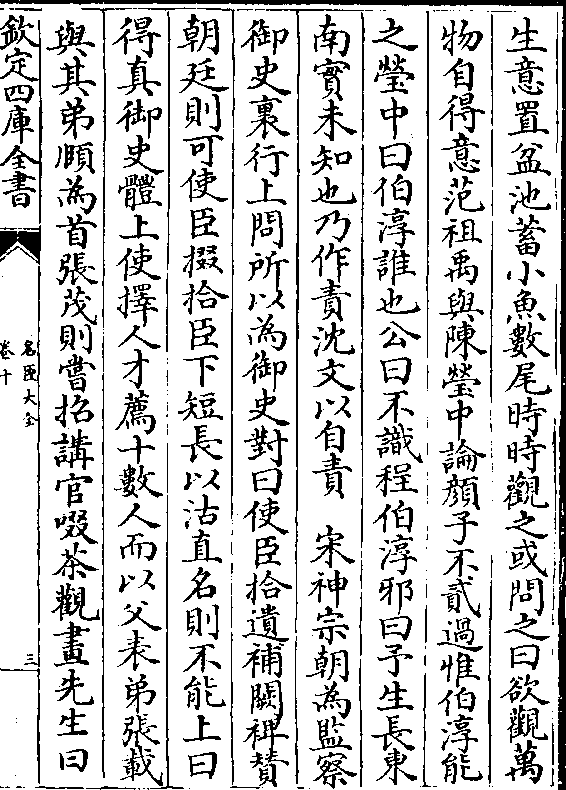 生意置盆池蓄小魚數尾時時觀之或問之曰欲觀萬
物自得意范祖禹與陳瑩中論顔子不貳過惟伯淳能
之瑩中曰伯淳誰也公曰不識程伯淳邪曰予生長東
南實未知也乃作責沈文以自責　宋神宗朝為監察
御史裏行上問所以為御史對曰使臣拾遺補闕裨賛
朝廷則可使臣掇拾臣下短長以沽直名則不能上曰
得真御史體上使擇人才薦十數人而以父表弟張載
與其弟頤為首張茂則嘗招講官啜茶觀畫先生曰
欽定四庫全書
名臣大全
卷十
三